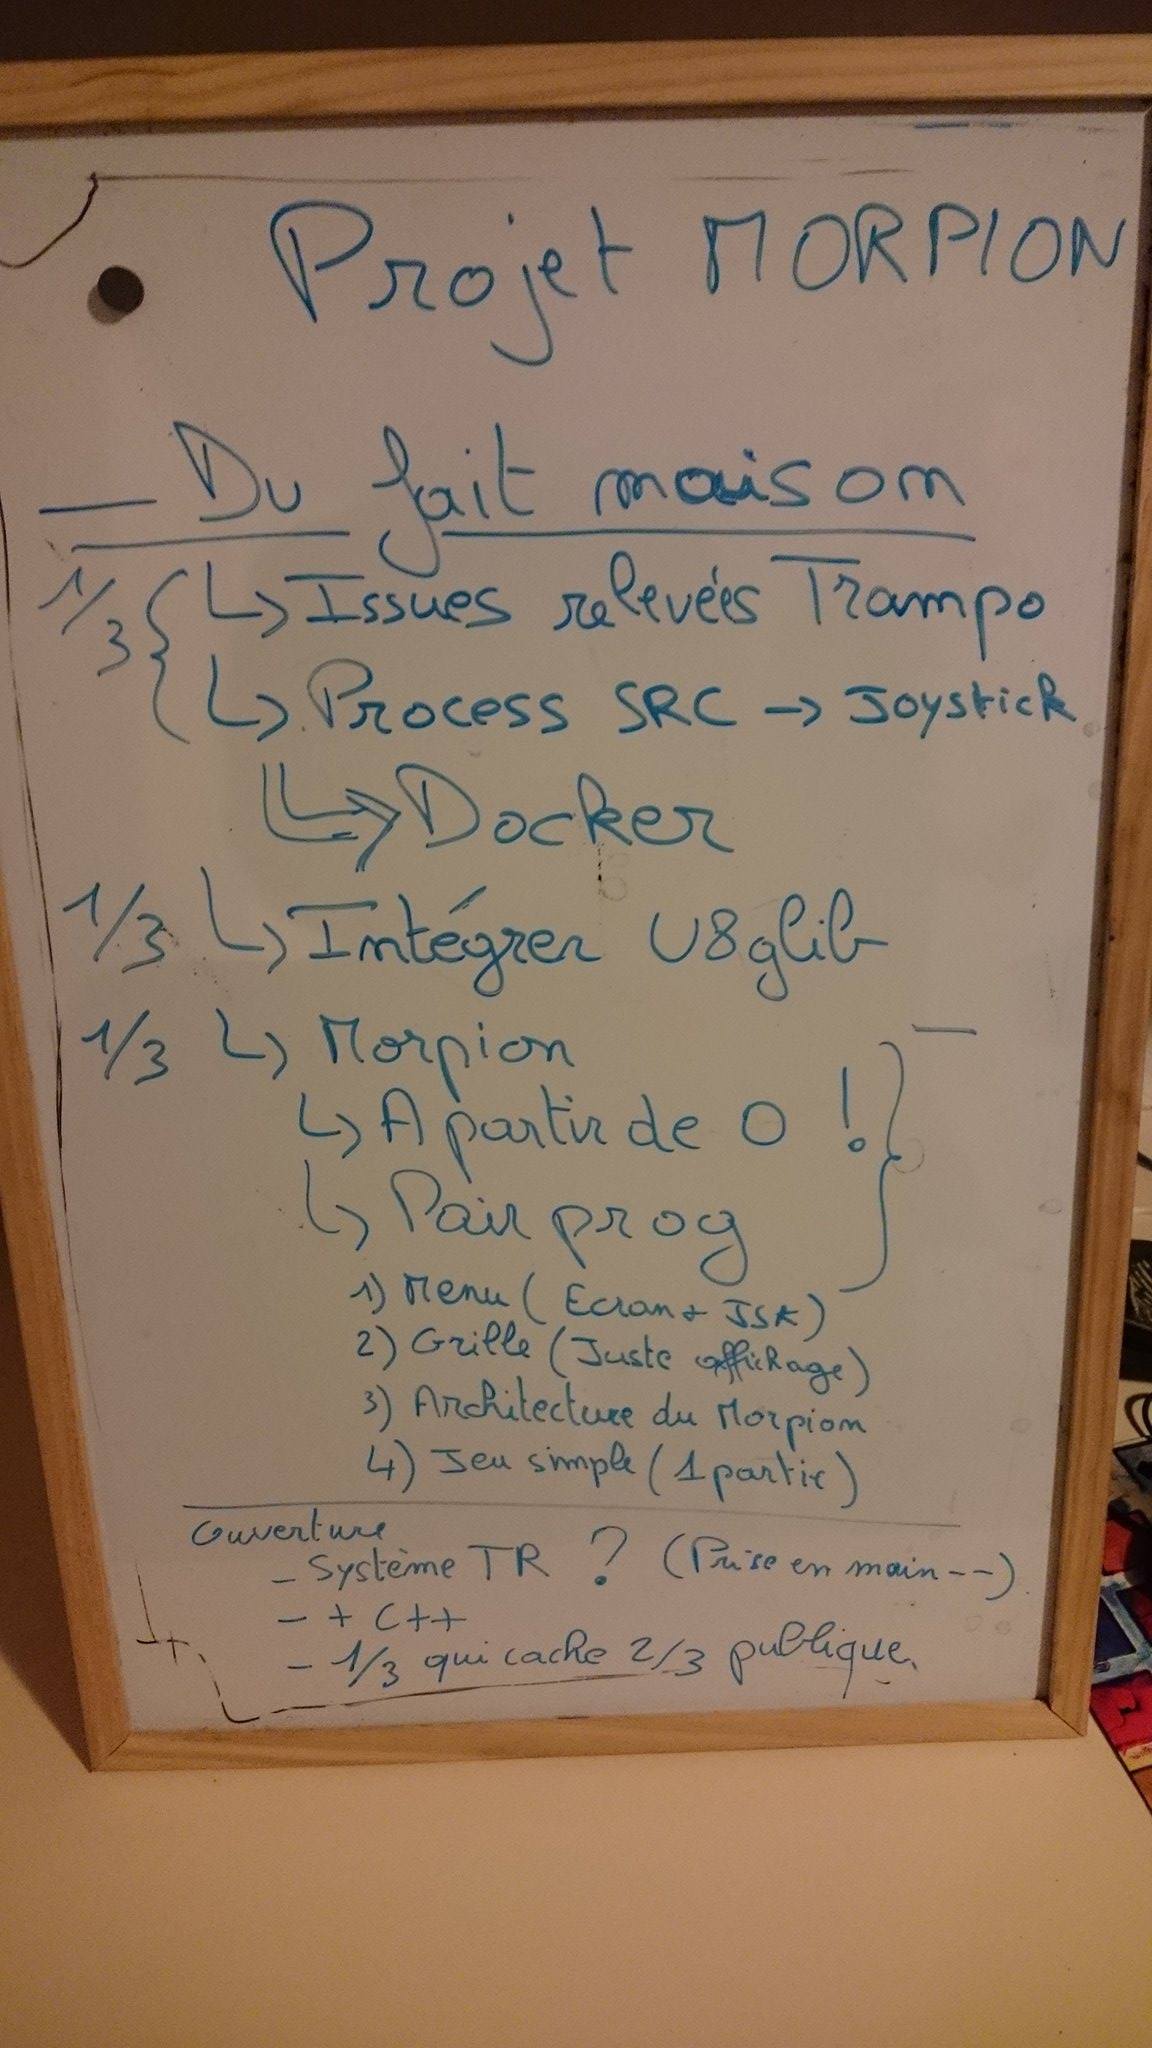 Projet MORPION
— Du fait maison
1/3 { ↳ Issues relevées Trampo
↳ Process SRC → Joystick
↳ Docker
1/3 ↳ Intégrer U8glib
1/3 ↳ Morpion
↳ A partir de 0 ! }
↳ Pair prog
1) Menu ( Ecran + JSK)
2) Grille (Juste affichage)
3) Architecture du Morpion
4) Jeu simple (1 partie)
Ouverture
- Système TR ? (Prise en main--)
- + C++
- 1/3 qui cache 2/3 publique.